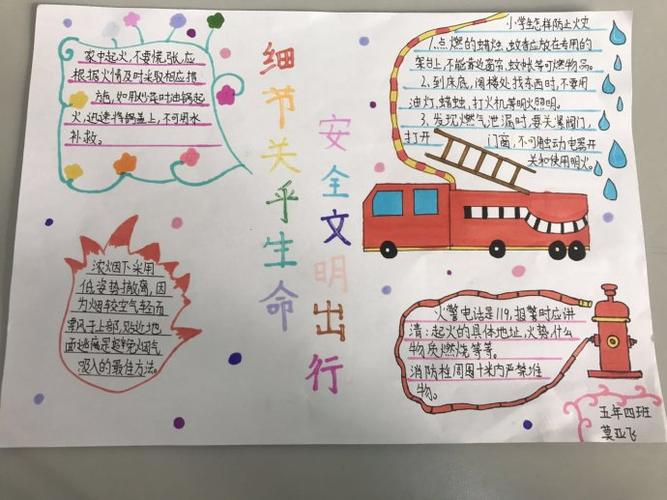 家中起火,不要慌张,应
根据火情及时采取相应措
施,如用炒菜时油锅起
火,迅速将锅盖上,不可用水
补救。
细节关乎生命
安全文明出行
小学生怎样防止火灾
1.点燃的蜡烛、蚊香应放在专用的
架台上,不能靠近窗帘、蚊帐等可燃物品。
2.到床底、阁楼处找东西时,不要用
油灯、蜡烛、打火机等明火照明。
3.发现燃气泄漏时,要关紧阀门,
打开 门窗,不可触动电器开
关和使用明火。
浓烟下采用
低姿势撤离,因
为烟较空气轻而
飘于上部,贴近地
面逃离是避免烟气
吸入的最佳方法。
火警电话是119,报警时应讲
清:起火的具体地址,火势什么
物质燃烧等等。
消防栓周围十米内严禁堆
物。
五年四班
莫亚飞